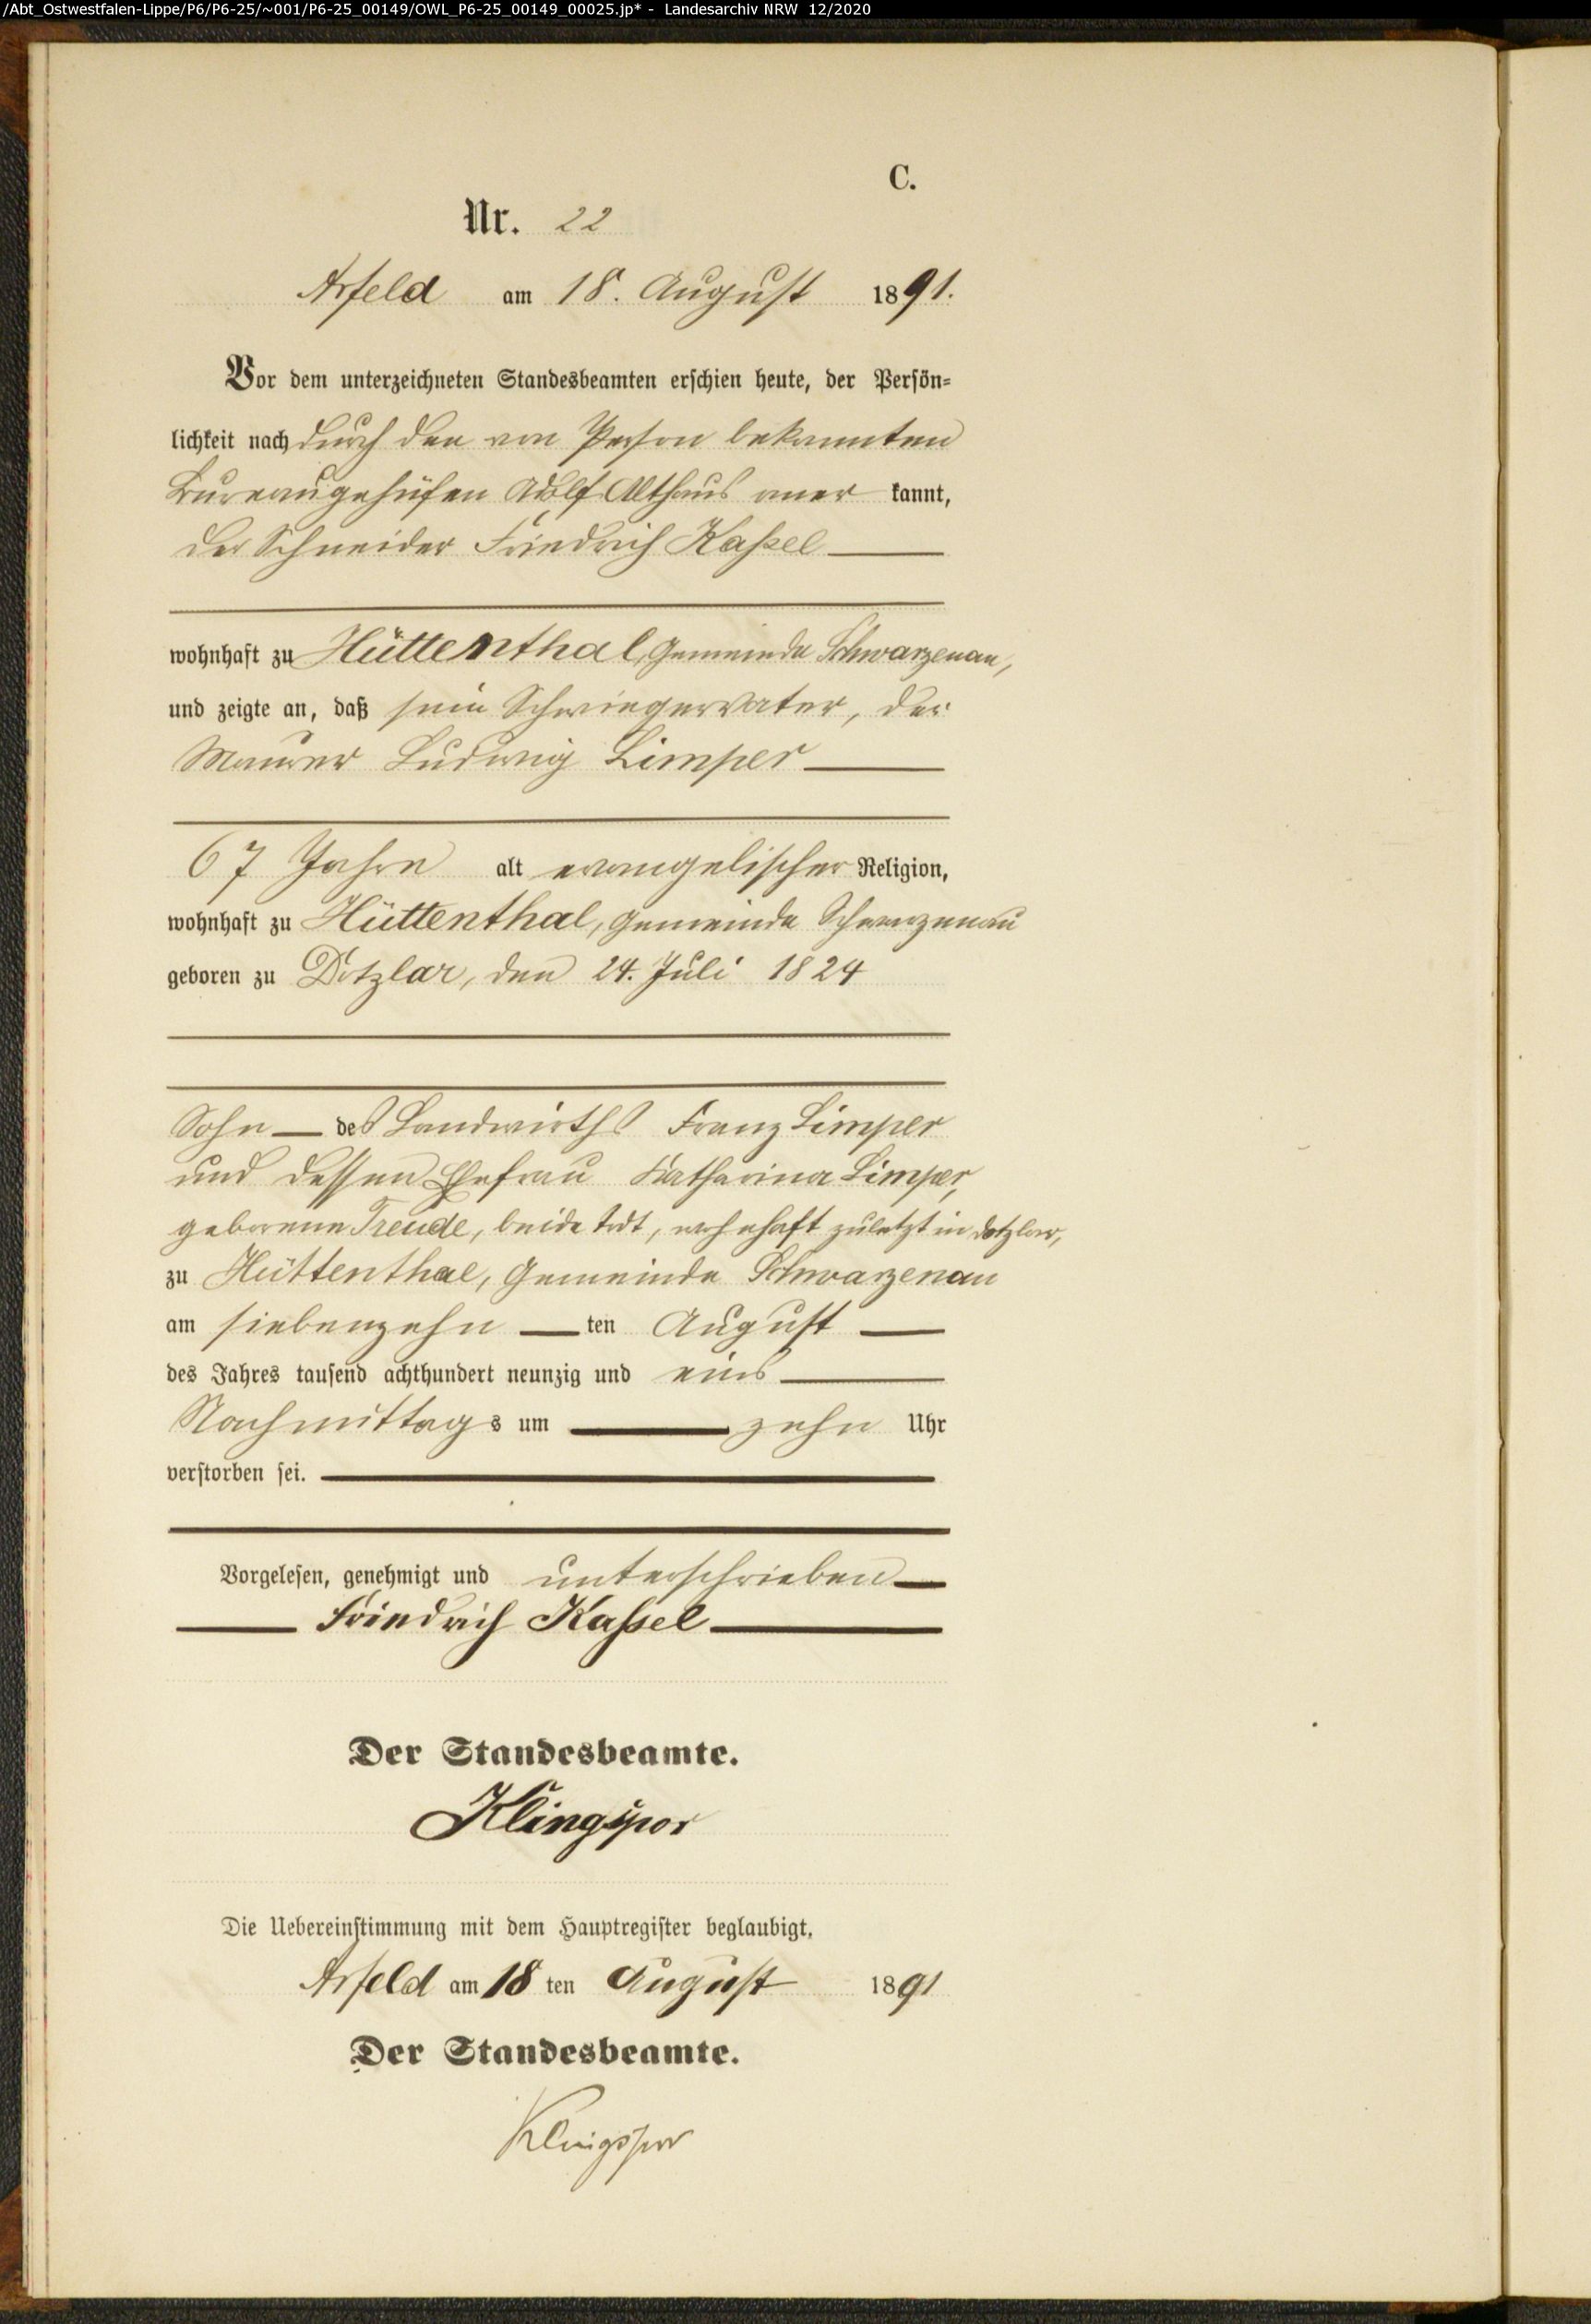 /Abt_Ostwestfalen-Lippe/P6/P6-25/~001/P6-25_00149/OWL_P6-25_00149_00025.jp* - Landesarchiv NRW 12/2020
C.
Nr. 22
Arfeld am 18. August 1891.
Vor dem unterzeichneten Standesbeamten erschien heute, der Persön-
lichkeit nach durch den von Person bekannten
Bureaugehüfen Adolf Althaus aner kannt,
der Schneider Friedrich Kaßel
wohnhaft zu Hüttenthal, Gemeinde Schwarzenau,
und zeigte an, daß sein Schwiegervater, der
Maurer Ludwig Limper
67 Jahre alt evangelischer Religion,
wohnhaft zu Hüttenthal, Gemeinde Schwarzenau
geboren zu Dotzlar, den 24. Juli 1824
Sohn des Landwirths Franz Limper
und dessen Ehefrau Katharina Limper,
geborene Treude, beide todt, wohnhaft zuletzt in Dotzlar,
zu Hüttenthal, Gemeinde Schwarzenau
am siebenzehn ten August
des Jahres tausend achthundert neunzig und eins
Nachmittags um zehn Uhr
verstorben sei.
Vorgelesen, genehmigt und unterschrieben
Friedrich Kaßel
Der Standesbeamte.
Klingspor
Die Uebereinstimmung mit dem Hauptregister beglaubigt.
Arfeld am 18 ten August 1891
Der Standesbeamte.
Klingspor